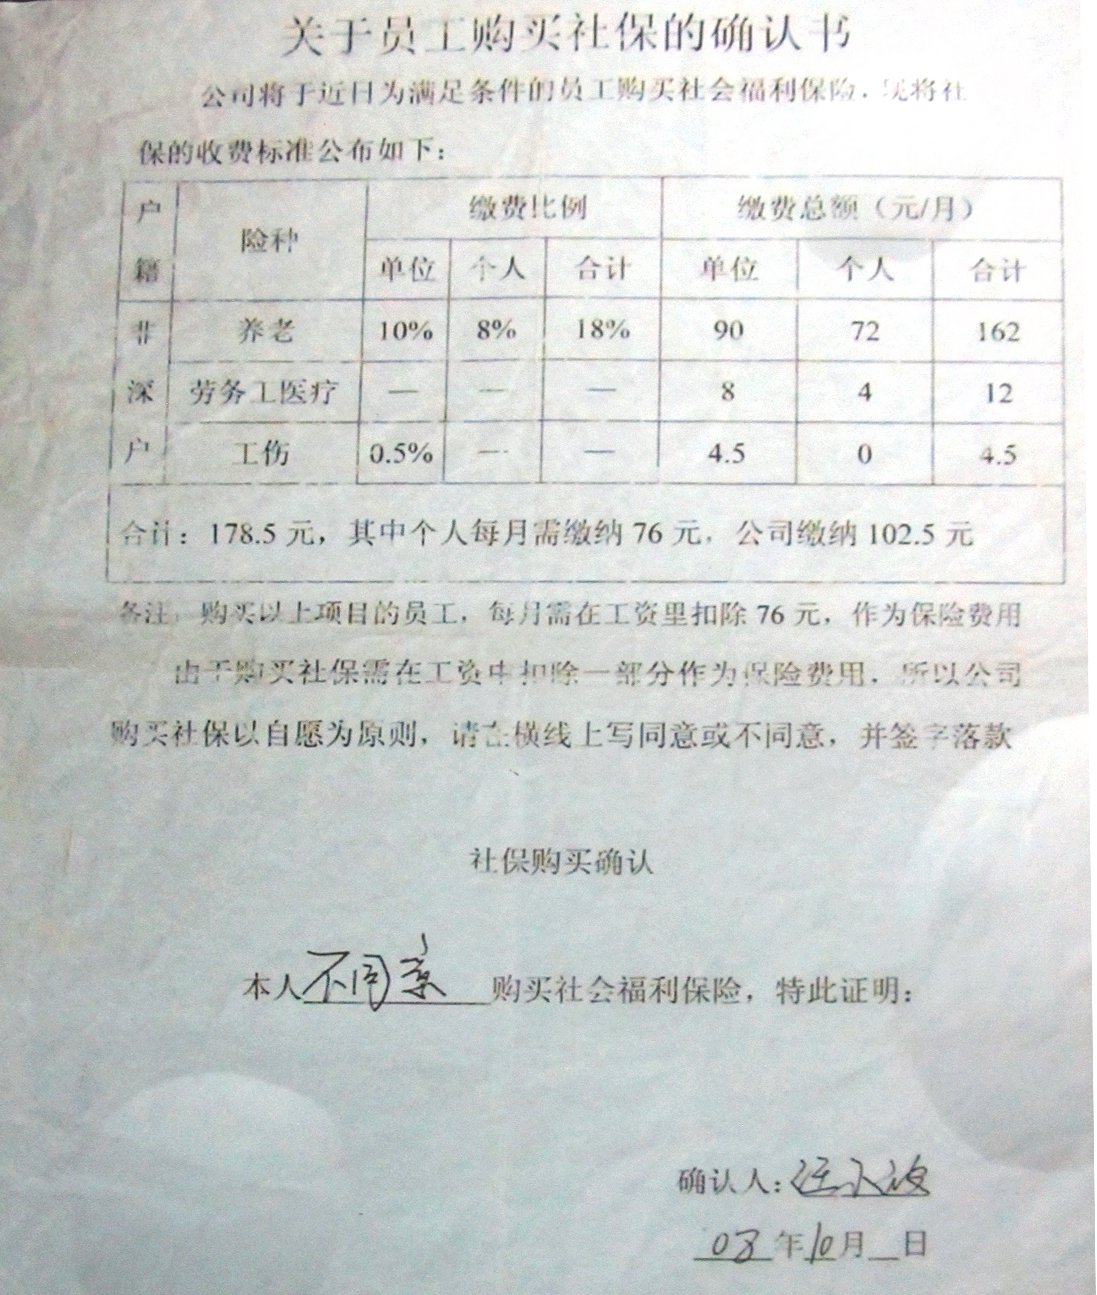 关于员工购买社保的确认书
公司将于近日为满足条件的员工购买社会福利保险，现将社
保的收费标准公布如下：
户籍 险种 缴费比例 缴费总额（元/月）
单位 个人 合计 单位 个人 合计
非深户 养老 10% 8% 18% 90 72 162
劳务工医疗 — — — 8 4 12
工伤 0.5% — — 4.5 0 4.5
合计：178.5 元，其中个人每月需缴纳 76 元，公司缴纳 102.5 元
备注：购买以上项目的员工，每月需在工资里扣除 76 元，作为保险费用
由于购买社保需在工资中扣除一部分作为保险费用，所以公司
购买社保以自愿为原则，请在横线上写同意或不同意，并签字落款
社保购买确认
本人不同意购买社会福利保险，特此证明：
确认人：
08年10月 日